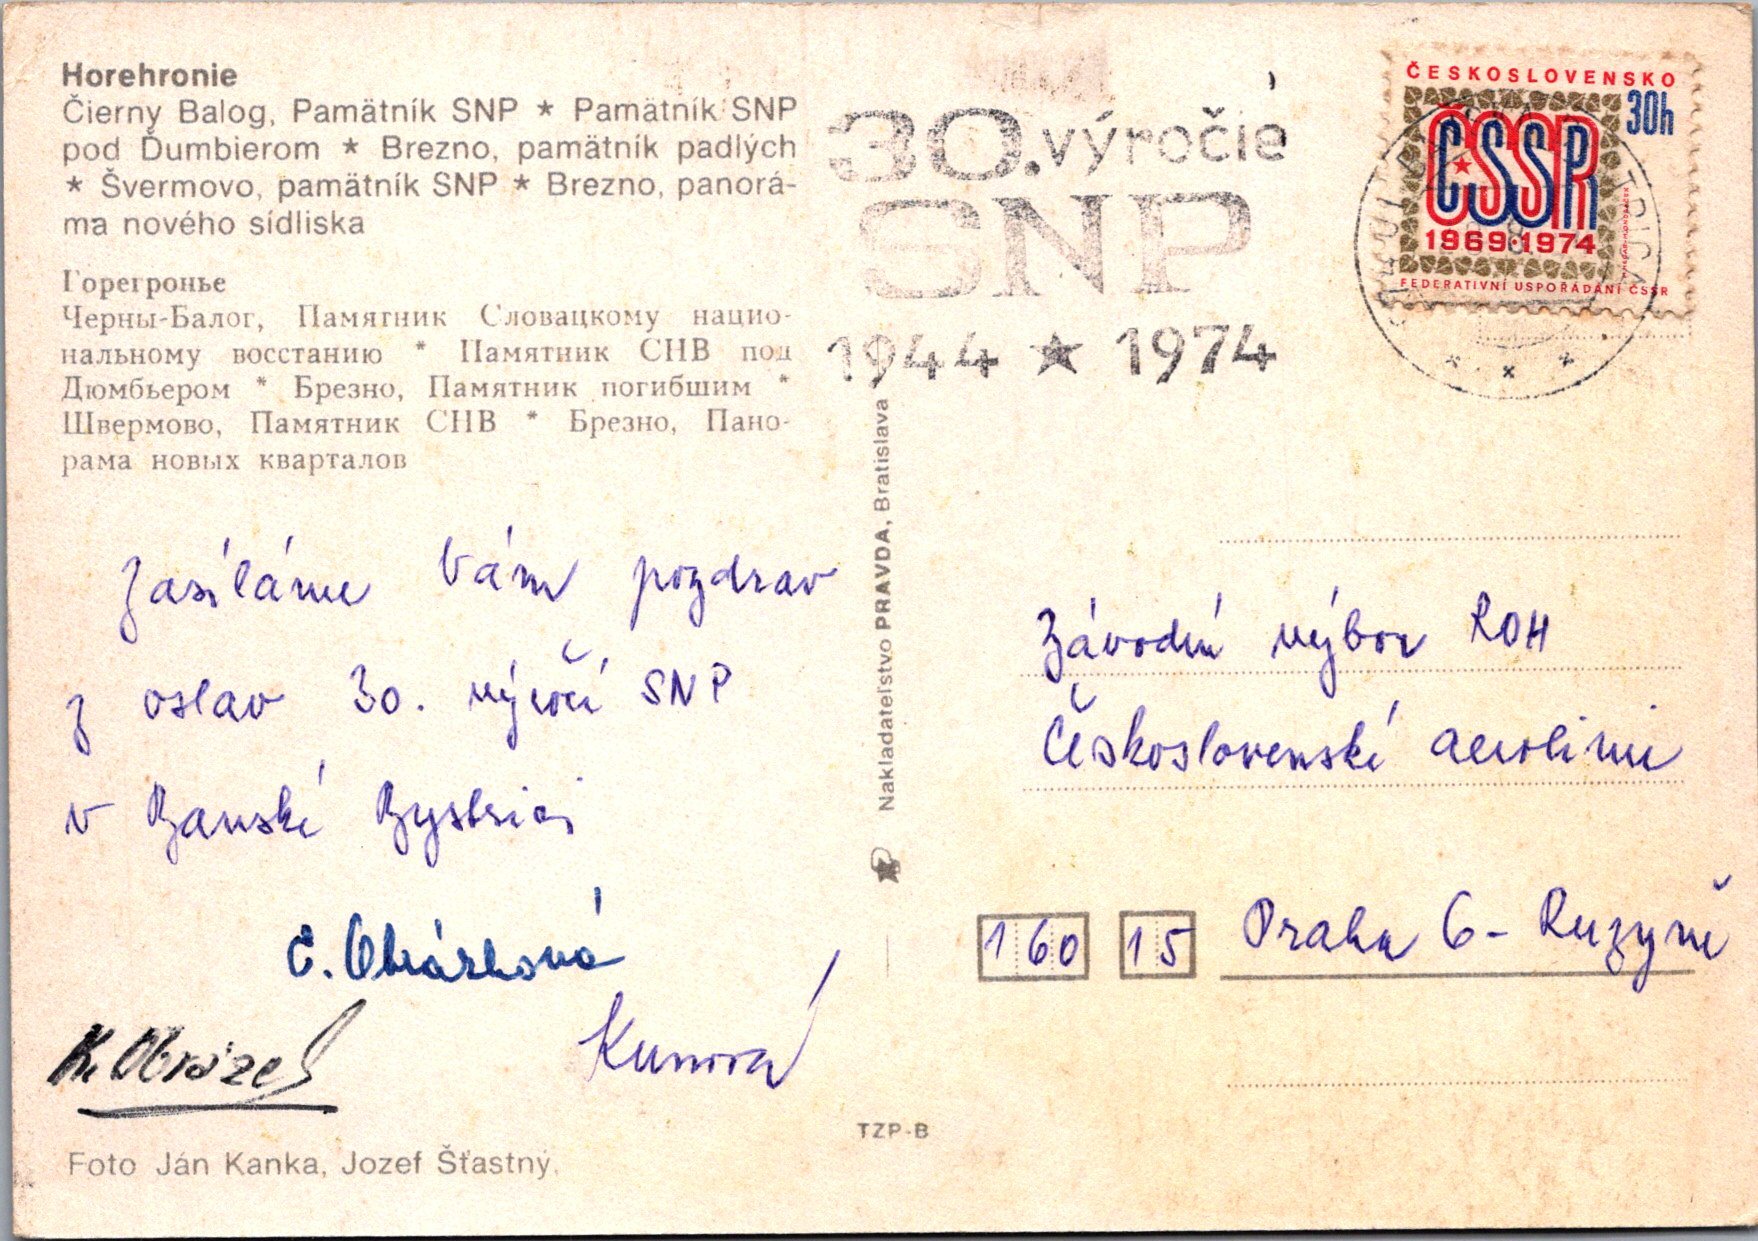 Horehronie
Čierny Balog, Pamätník SNP * Pamätník SNP
pod Ďumbierom * Brezno, pamätník padlých
* Švermovo, pamätník SNP * Brezno, panorá-
ma nového sídliska
Горегронье
Черны-Балог, Памятник Словацкому нацио-
нальному восстанию * Памятник СНВ под
Дюмбьером * Брезно, Памятник погибшим *
Швермово, Памятник СНВ * Брезно, Пано-
рама новых кварталов
Zasíláme Vám pozdrav
z oslav 30. výročí SNP
v Banské Bystrici
Obrázková
K. Obrázek
Kunová
Foto Ján Kanka, Jozef Šťastný.
30. výročie
SNP
1944 ★ 1974
Nakladateľstvo PRAVDA, Bratislava
TZP-B
ČESKOSLOVENSKO
30h
ČSSR
1969·1974
FEDERATIVNÍ USPOŘÁDÁNÍ ČSSR
Závodní výbor ROH
Československé aerolinie
160 15 Praha 6 - Ruzyně